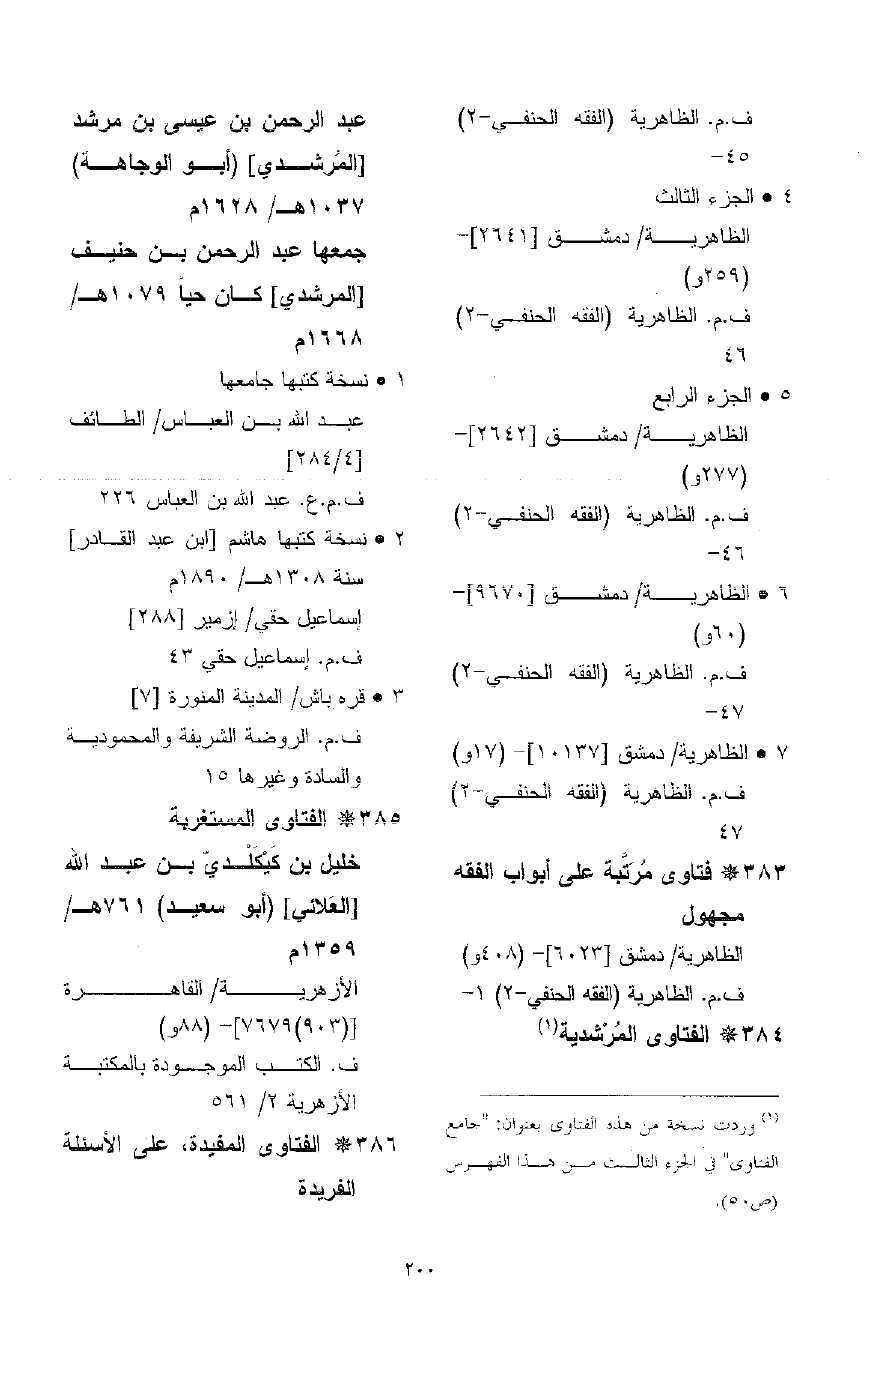 ف.م. الظاهرية (الفقه الحنفي-٢)
٤٥-
٤ • الجزء الثالث
الظاهرية/ دمشق [٢٦٤١]-
(٢٥٩و)
ف.م. الظاهرية (الفقه الحنفي-٢)
٤٦
٥ • الجزء الرابع
الظاهرية/ دمشق [٢٦٤٢]-
(٢٧٧و)
ف.م. الظاهرية (الفقه الحنفي-٢)
٤٦-
٦ • الظاهرية/ دمشق [٩٦٧٠]-
(٦٠و)
ف.م. الظاهرية (الفقه الحنفي-٢)
٤٧-
٧ • الظاهرية/ دمشق [١٠١٣٧]- (١٧و)
ف.م. الظاهرية (الفقه الحنفي-٢)
٤٧
٣٨٣* فتاوى مُرَتَّبة على أبواب الفقه
مجهول
الظاهرية/ دمشق [٦٠٢٣]- (٤٠٨و)
ف.م. الظاهرية (الفقه الحنفي-٢) ١-
٣٨٤* الفتاوى المُرْشدية(١)
(١) وردت نسخة من هذه الفتاوى بعنوان: "جامع
الفتاوى" في الجزء الثالث من هذا الفهرس
(ص٥٠).
عبد الرحمن بن عيسى بن مرشد
[المُرشدي] (أبو الوجاهة)
١٠٣٧هـ/ ١٦٢٨م
جمعها عبد الرحمن بن حنيف
[المرشدي] كان حياً ١٠٧٩هـ/
١٦٦٨م
١ • نسخة كتبها جامعها
عبد الله بن العباس/ الطائف
[٢٨٤/٤]
ف.م.ع. عبد الله بن العباس ٢٢٦
٢ • نسخة كتبها هاشم [ابن عبد القادر]
سنة ١٣٠٨هـ/ ١٨٩٠م
إسماعيل حقي/ إزمير [٢٨٨]
ف.م. إسماعيل حقي ٤٣
٣ • قره باش/ المدينة المنورة [٧]
ف.م. الروضة الشريفة والمحمودية
والسادة وغيرها ١٥
٣٨٥* الفتاوى المستغربة
خليل بن كَيْكَلْديّ بن عبد الله
[العَلائي] (أبو سعيد) ٧٦١هـ/
١٣٥٩م
الأزهرية/ القاهرة
[(٩٠٣)٧٦٧٩]- (٨٨و)
ف. الكتب الموجودة بالمكتبة
الأزهرية ٢/ ٥٦١
٣٨٦* الفتاوى المفيدة، على الأسئلة
الفريدة
٢٠٠